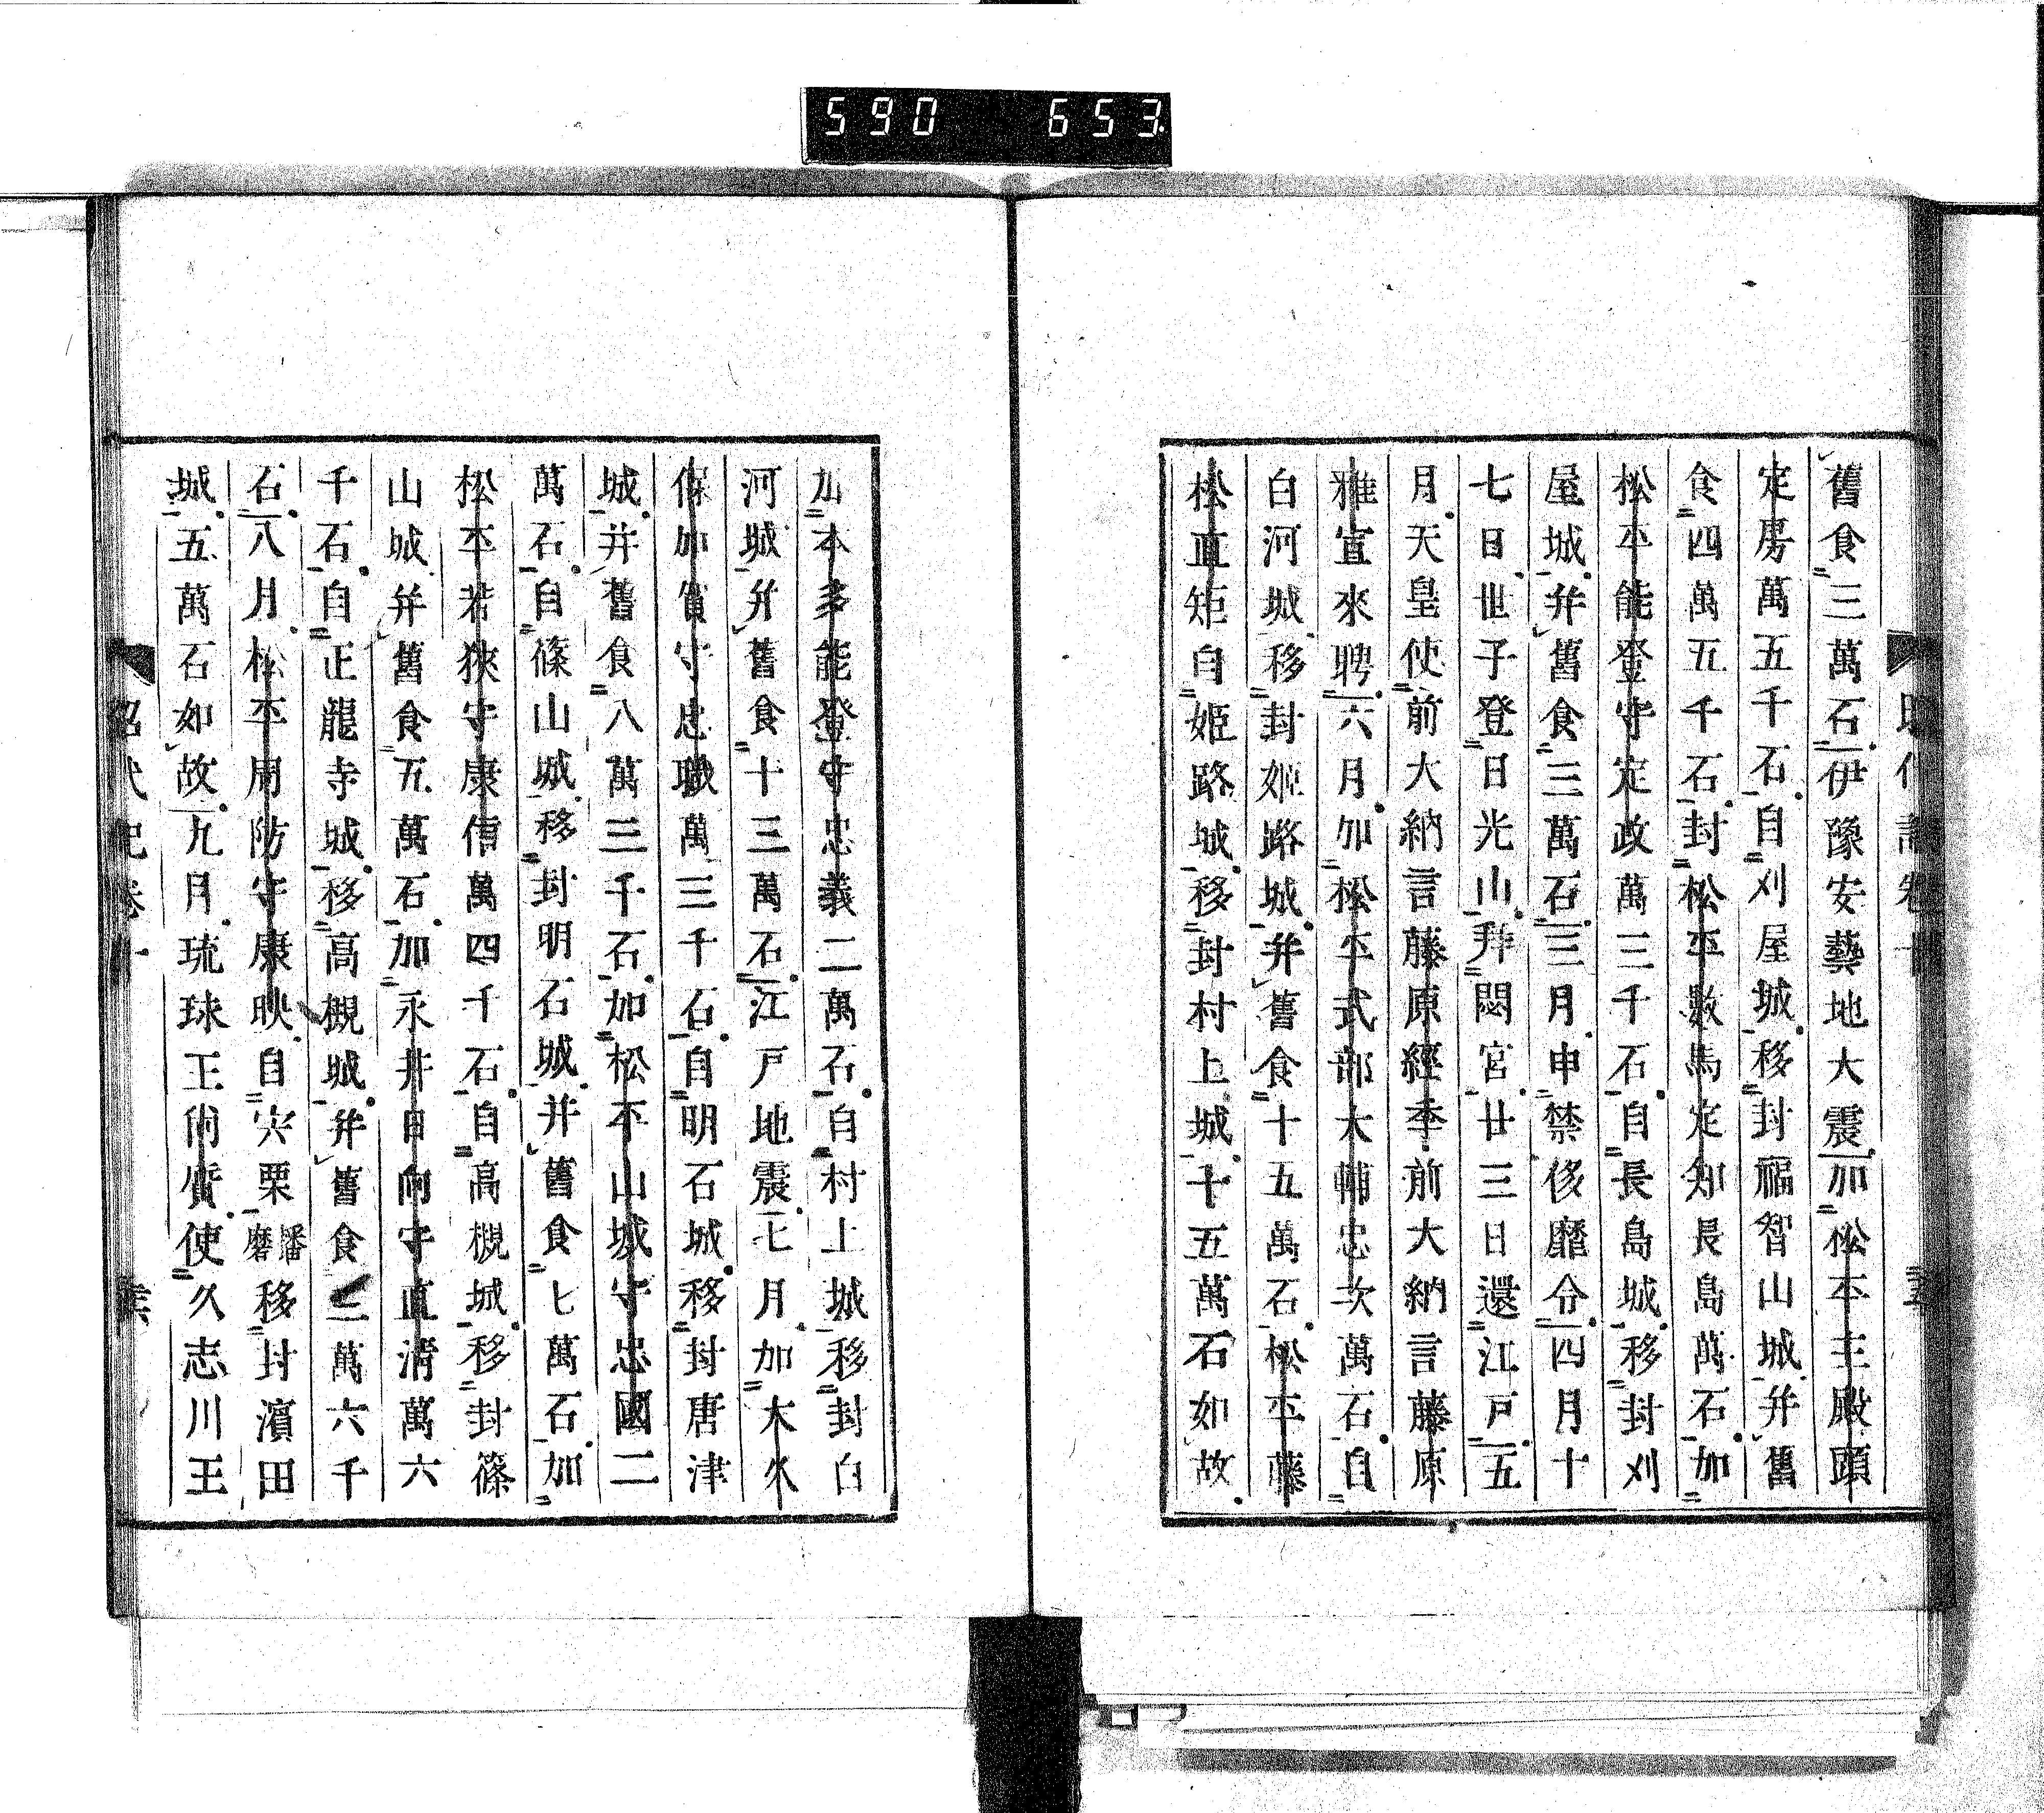 590 653
舊食三萬石伊豫安藝地大震加松平主殿頭
定房萬五千石自刈屋城移封福智山城幷舊
食四萬五千石封松平數馬定知長島萬石加
松平能登守定政萬三千石自長島城移封刈
屋城幷舊食三萬石三月申禁侈靡令四月十
七日世子登日光山拜悶宮廿三日還江戸五
月天皇使前大納言藤原經季前大納言藤原
雅宣來聘六月加松平式部大輔忠次萬石自
白河城移封姬路城幷舊食十五萬石松平藤
松直矩自姬路城移封村上城十五萬石如故
加本多能登守忠義二萬石自村上城移封白
河城幷舊食十三萬石江戸地震七月加大久
保加賀守忠職萬三千石自明石城移封唐津
城幷舊食八萬三千石加松平山城守忠國二
萬石自篠山城移封明石城幷舊食七萬石加
松平若狹守康信萬四千石自高槻城移封篠
山城幷舊食五萬石加永井日向守直淸萬六
千石自正龍寺城移高槻城幷舊食三萬六千
石八月松平周防守康映自宍栗播磨移封濱田
城五萬石如故九月琉球王尙質使久志川王
昭代記卷十